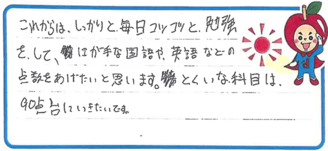 これからは、しっかりと毎日コツコツと、勉強
をして、にが手な国語や、英語などの
点数をあげたいと思います。とくいな科目は、
90点台にいきたいです。